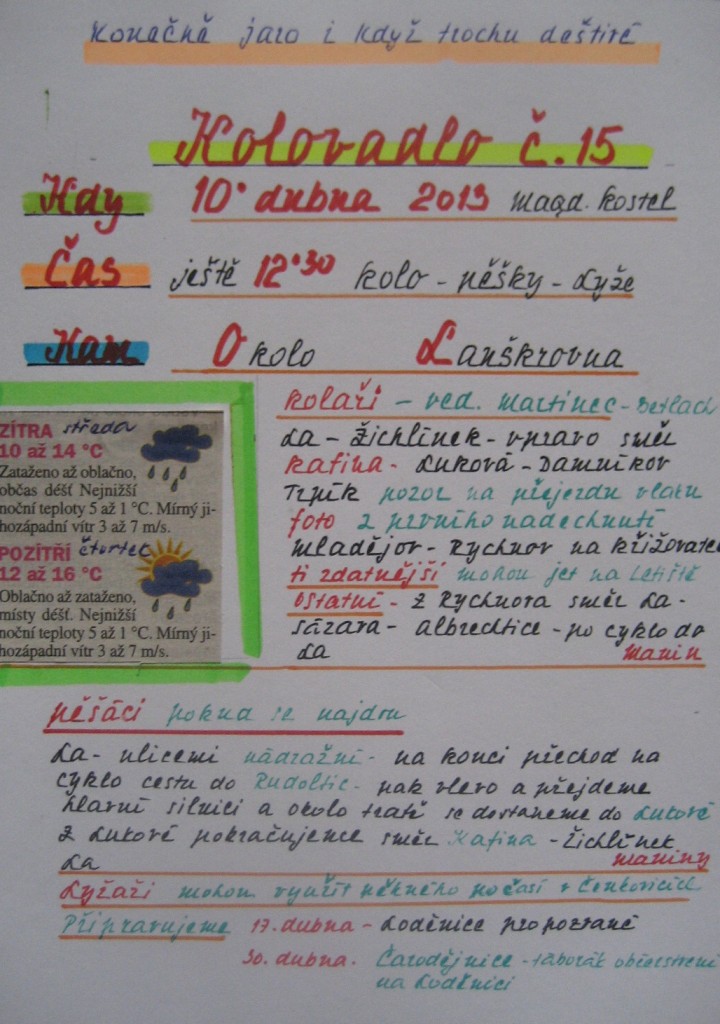 Konečně jaro i když trochu deštivé
Kolovadlo č.15
Kdy 10. dubna 2013 Magd. kostel
Čas ještě 12.30 kolo - pěšky - lyže
Kam Okolo Lanškrovna
kolaři - ved. Martinec -
La - Žichlínek - vpravo směr
ZÍTRA středa
10 až 14 °C
Zataženo až oblačno,
občas déšť. Nejnižší
noční teploty 5 až 1 °C. Mírný ji-
hozápadní vítr 3 až 7 m/s.
POZÍTŘÍ čtvrtek
12 až 16 °C
Oblačno až zataženo,
místy déšť. Nejnižší
noční teploty 5 až 1 °C. Mírný ji-
hozápadní vítr 3 až 7 m/s.
Katina - Luková - Damníkov
Trpík pozor na přejezdu vlaku
foto z prvního nadechnutí
Mladějov - Rychnov na křižovatce
ti zdatnější mohou jet na Letiště
ostatní - z Rychnova směr La-
sázava - albrechtice - po cyklo do
La Manin
pěšáci pokud se najdou
La - ulicemi nádražní - na konci přechod na
cyklo cestu do Rudoltic - pak vlevo a přejdeme
hlavní silnici a okolo tratě se dostaneme do Lukové
z Lukové pokračujeme směr Katina - Žichlínek
La maniny
Lyžaři mohou využít pěkného počasí v Čenkovicích
Připravujeme 17. dubna - Loděnice pro pozvané
30. dubna. Čarodějnice - táborák občerstvení
na Loděnici